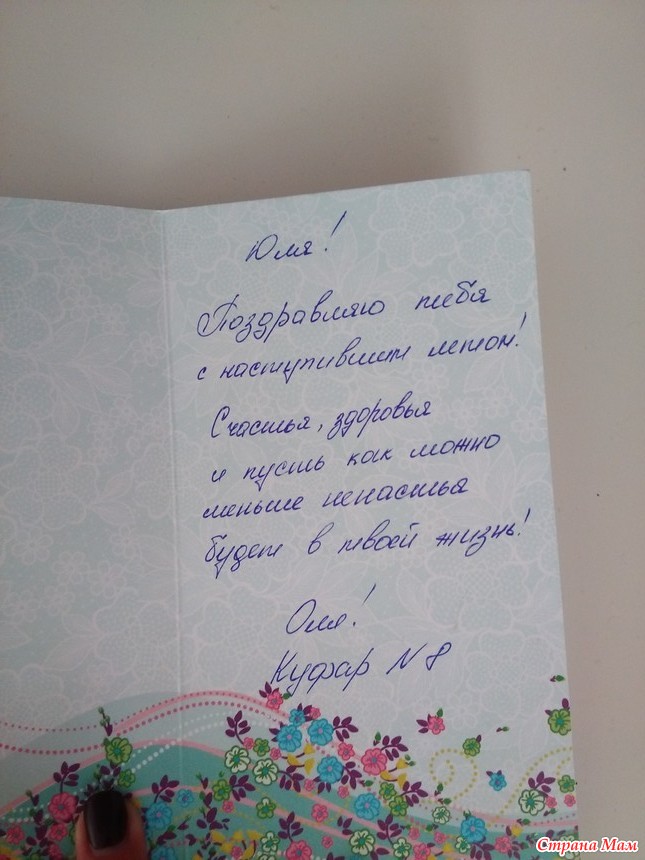 Юля!
Поздравляю тебя
с наступившим летом!
Счастья, здоровья
и пусть как можно
меньше ненастья
будет в твоей жизнь!
Оля!
Куфар N 8
Страна Мам